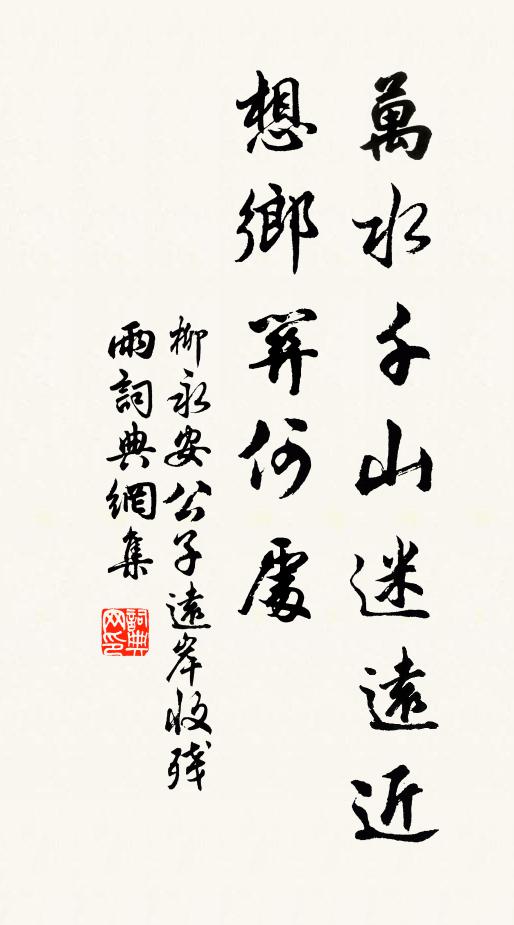 萬水千山迷遠近
想鄉關何處
柳永安公子遠岸收残
雨詞典網集
詞典
网印